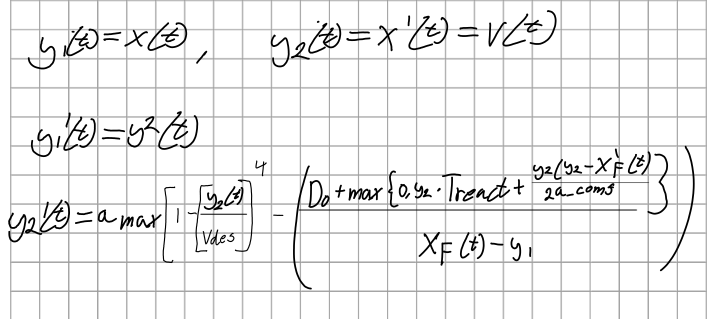 y₁(t) = x(t), y₂(t) = x'(t) = v(t)
y₁'(t) = y²(t)
y₂'(t) = a max [1 - [y₂(t) / Vdes]⁴ - (D₀ + max{0, y₂ · Treact + y₂(y₂ - x'F(t) / 2a_coms} / XF(t) - y₁)